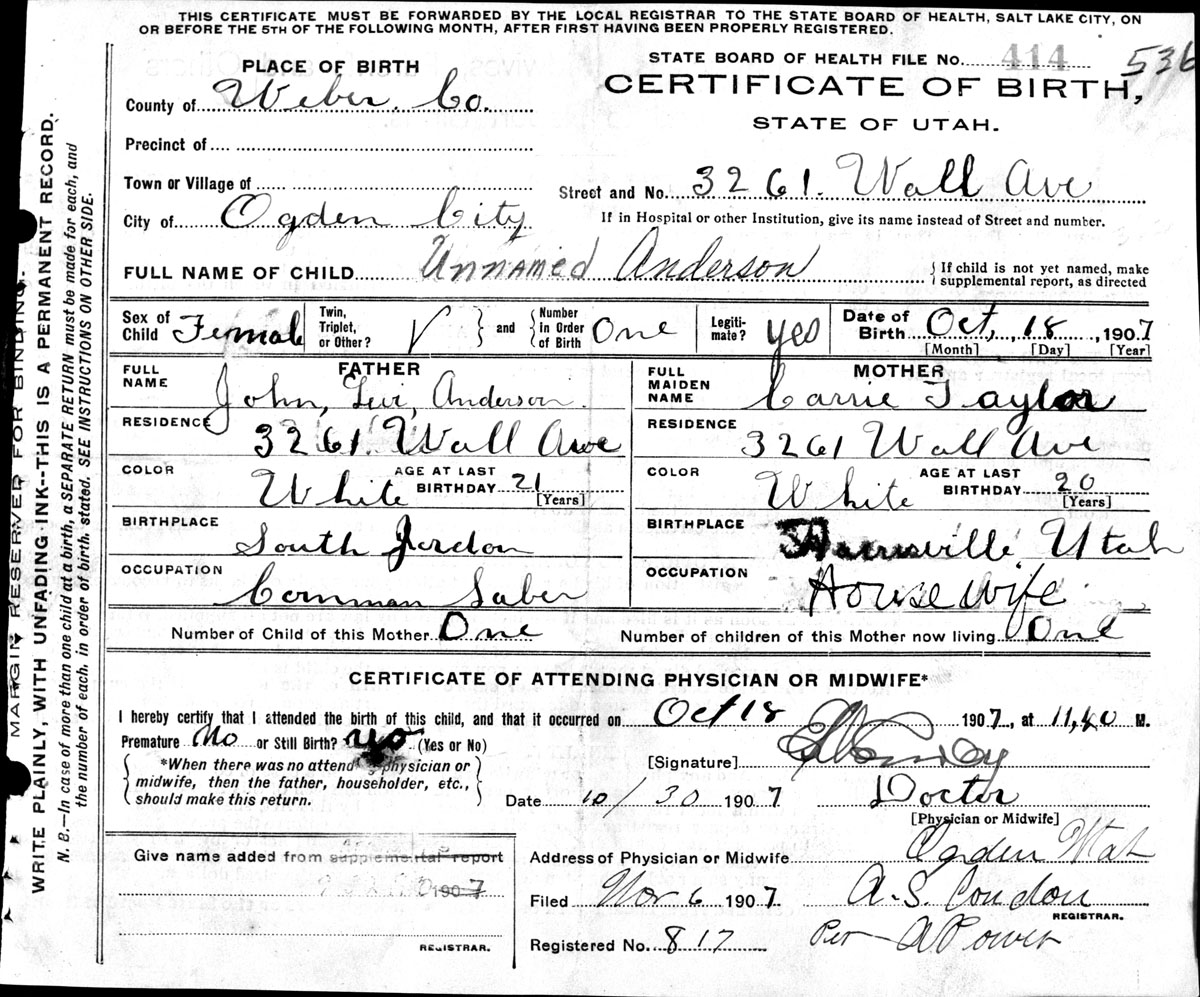 THIS CERTIFICATE MUST BE FORWARDED BY THE LOCAL REGISTRAR TO THE STATE BOARD OF HEALTH, SALT LAKE CITY, ON
OR BEFORE THE 5TH OF THE FOLLOWING MONTH, AFTER FIRST HAVING BEEN PROPERLY REGISTERED.
STATE BOARD OF HEALTH FILE NO. 414 536
PLACE OF BIRTH
CERTIFICATE OF BIRTH,
STATE OF UTAH.
County of Weber. Co.
Precinct of
Town or Village of
Street and No. 3261. Wall Ave
City of Ogden City
If in Hospital or other Institution, give its name instead of Street and number.
FULL NAME OF CHILD Unnamed Anderson
{ If child is not yet named, make
supplemental report, as directed
Sex of Child Female
Twin, Triplet, or Other? √ } and { Number in Order of Birth One
Legiti-mate? yes
Date of Birth Oct, 18, 1907
[Month] [Day] [Year]
FATHER
FULL NAME John, Levi, Anderson.
RESIDENCE 3261. Wall Ave
COLOR White AGE AT LAST BIRTHDAY 21 [Years]
BIRTHPLACE South Jordon
OCCUPATION Comman Laber
MOTHER
FULL MAIDEN NAME Carrie Taylor
RESIDENCE 3261 Wall Ave
COLOR White AGE AT LAST BIRTHDAY 20 [Years]
BIRTHPLACE Harrisville Utah
OCCUPATION House wife
Number of Child of this Mother One
Number of children of this Mother now living One
CERTIFICATE OF ATTENDING PHYSICIAN OR MIDWIFE*
I hereby certify that I attended the birth of this child, and that it occurred on Oct 18 1907, at 11,40 M.
Premature No or Still Birth? (Yes or No)
{ *When there was no attending physician or
midwife, then the father, householder, etc.,
should make this return. }
[Signature]
Date 10/30 1907 Doctor
[Physician or Midwife]
Give name added from supplemental report
1907
REGISTRAR.
Address of Physician or Midwife Ogden Utah
Filed Nov 6 1907 A. S. Condon
REGISTRAR.
Registered No. 817 Per A Power
MARGIN RESERVED FOR BINDING.
WRITE PLAINLY, WITH UNFADING INK--THIS IS A PERMANENT RECORD.
N. B.—In case of more than one child at a birth, a SEPARATE RETURN must be made for each, and
the number of each, in order of birth, stated. SEE INSTRUCTIONS ON OTHER SIDE.